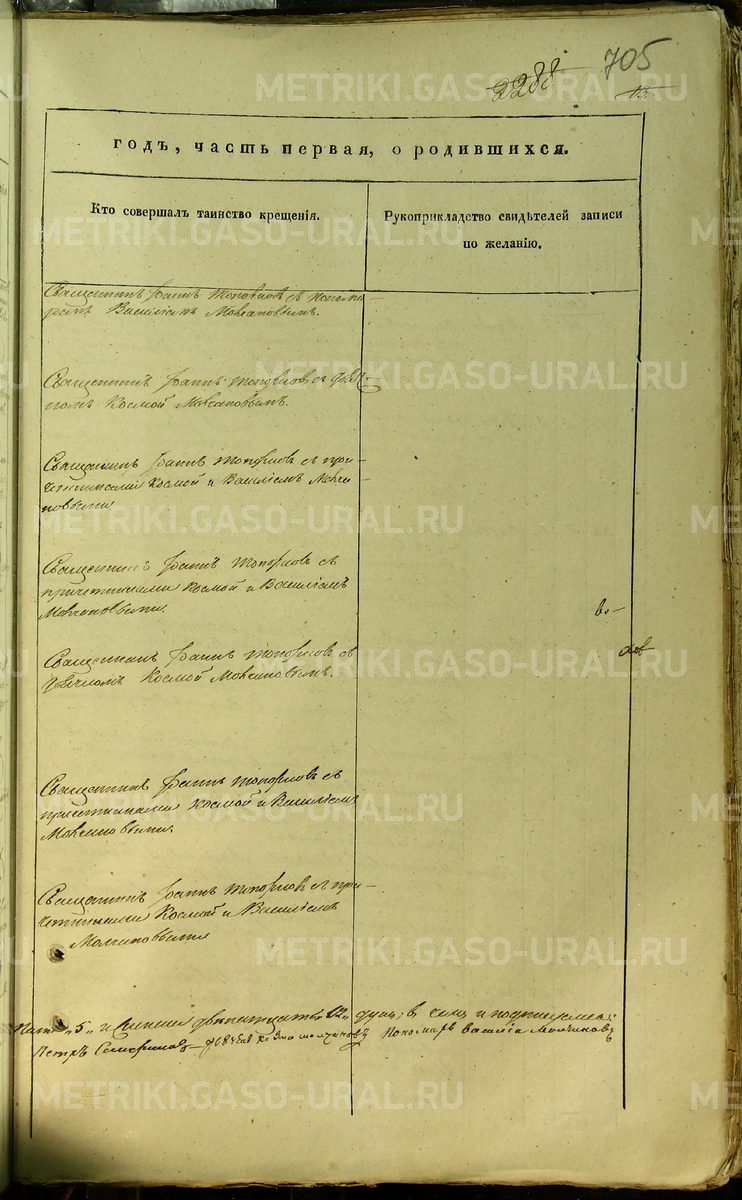 2288 705
13.
годъ, часть первая, о родившихся.
Кто совершалъ таинство крещенія.
Рукоприкладство свидѣтелей записи
по желанію.
Священникъ Іоаннъ Топорковъ съ понома-
ремъ Василіемъ Молчановымъ.
Священникъ Іоаннъ Топорковъ съ дьяч-
комъ Космой Молчановымъ.
Священникъ Іоаннъ Топорковъ съ при-
четниками Космой и Василіемъ Молча-
новыми
Священникъ Іоаннъ Топорковъ съ
причетниками Космой и Василіемъ
Молчановыми.
Священникъ Іоаннъ Топорковъ съ
дьячкомъ Космой Молчановымъ.
Священникъ Іоаннъ Топорковъ съ
причетниками Космой и Василіемъ
Молчановыми.
Священникъ Іоаннъ Топорковъ съ при-
четниками Космой и Василіемъ
Молчановыми
"5" и двенатцать 12 душъ; в и
Петръ дьячекъ Козма Молчановъ Пономарь Василій Молчановъ
METRIKI.GASO-URAL.RU